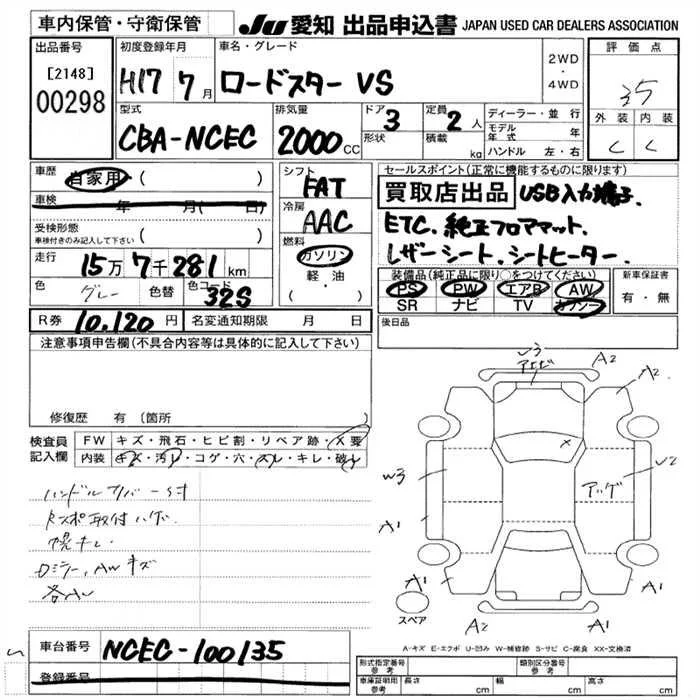 車内保管・守衛保管
JU 愛知 出品申込書 JAPAN USED CAR DEALERS ASSOCIATION
出品番号 初度登録年月 車名・グレード 評価点
[2148]
00298 H17 7月 ロードスター VS 2WD・4WD 35
型式 排気量 ドア 3 定員 2人 ディーラー・並行 外装 内装
CBA-NCEC 2000cc 形状 積載 kg モデル年式 年 C C
ハンドル 左・右
車歴 自家用 ( ) シフト FAT セールスポイント(正常に機能するものに限ります)
車検 年 月( 日) 冷房 AAC 買取店出品 USB入力端子.
受検形態 ETC. 純正フロアマット.
車検付きのみ記入して下さい ( ) 燃料 ガソリン 軽油 ( ・ ) レザーシート. シートヒーター.
走行 15万7千281km
色 グレー 色替 色コード 32S
装備品(純正品に限り○をつけてください) 新車保証書
PS PW エアB AW 有・無
SR ナビ TV カワシート
R券 10,120円 名変通知期限 月 日 後日品
注意事項申告欄(不具合内容等は具体的に記入して下さい)
修復歴 有 (箇所 )
検査員 FW キズ・飛石・ヒビ割・リペア跡・X要
記入欄 内装 キズ・汚レ・コゲ・穴・スレ・キレ・破レ
ハンドルカバースオ
幌キレ
ロミラー, AWキズ
各AU
W3 A2
A2
W3 U2
アッゲ
A1
A1 A1
A2
A1
スペア
A-キズ E-エクボ U-凹み W-補修跡 S-サビ C-腐食 XX-交換済
車台番号 NCEC-100135
登録番号
形式指定番号 参考 類別区分番号 参考
車庫証明用 参考 長さ cm 幅 cm 高さ cm